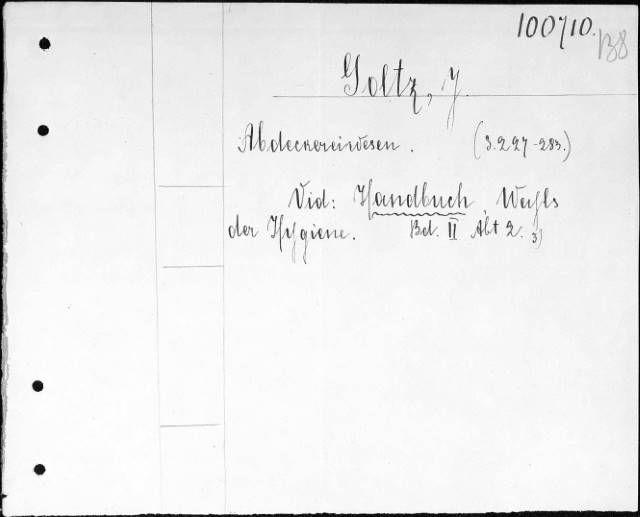 100710.
138
Goltz, J.
Abdeckereiwesen. (S. 227-283.)
Vid: Handbuch Weyls
der Hygiene. Bd. II Abt 2. 3)